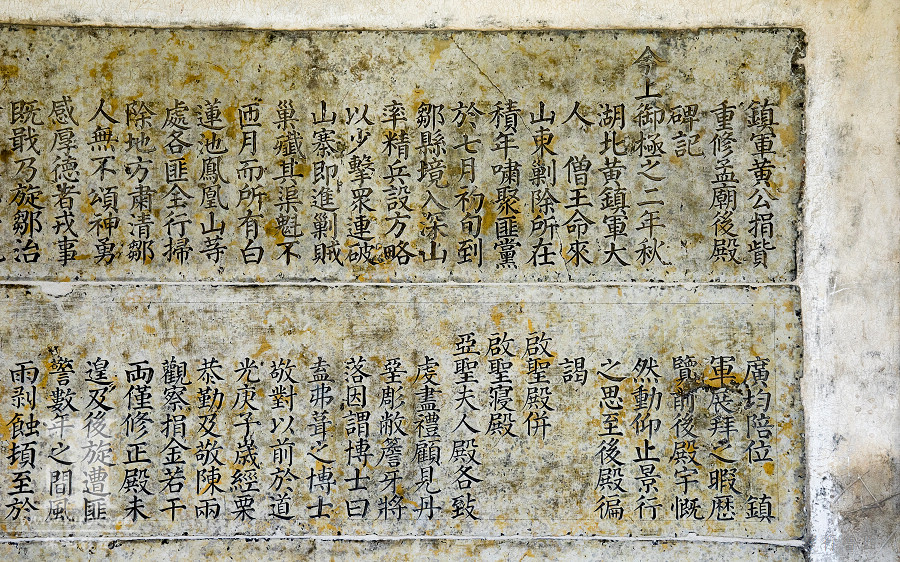 鎮軍黃公捐貲
重修孟廟後殿
碑記
今上御極之二年秋
湖北黃鎮軍大
人 僧王命來
山東剿除所在
積年嘯聚匪黨
於七月初旬到
鄒縣境入深山
率精兵設方略
以少擊眾連破
山寨即進巢賊
巢殲其渠魁不
匝月而所有白
蓮池鳳凰山等
處各匪全行掃
除地方肅清鄒
人無不頌神勇
感厚德者戎事
既戢乃旋鄒治
廣均陪位 鎮
軍展拜之暇歷
覽前後殿宇慨
然動仰止景行
之思至後殿徧
謁
啟聖殿併
啟聖寢殿
亞聖夫人殿各致
虔盡禮顧見丹
堊彫敝簷牙將
落因謂博士曰
盍弗葺之博士
敬對以前於道
光庚子歲經栗
恭勤及敬陳兩
觀察捐金若干
兩僅修正殿未
遑及後旋遭匪
警數年之間風
雨剥蝕損至於